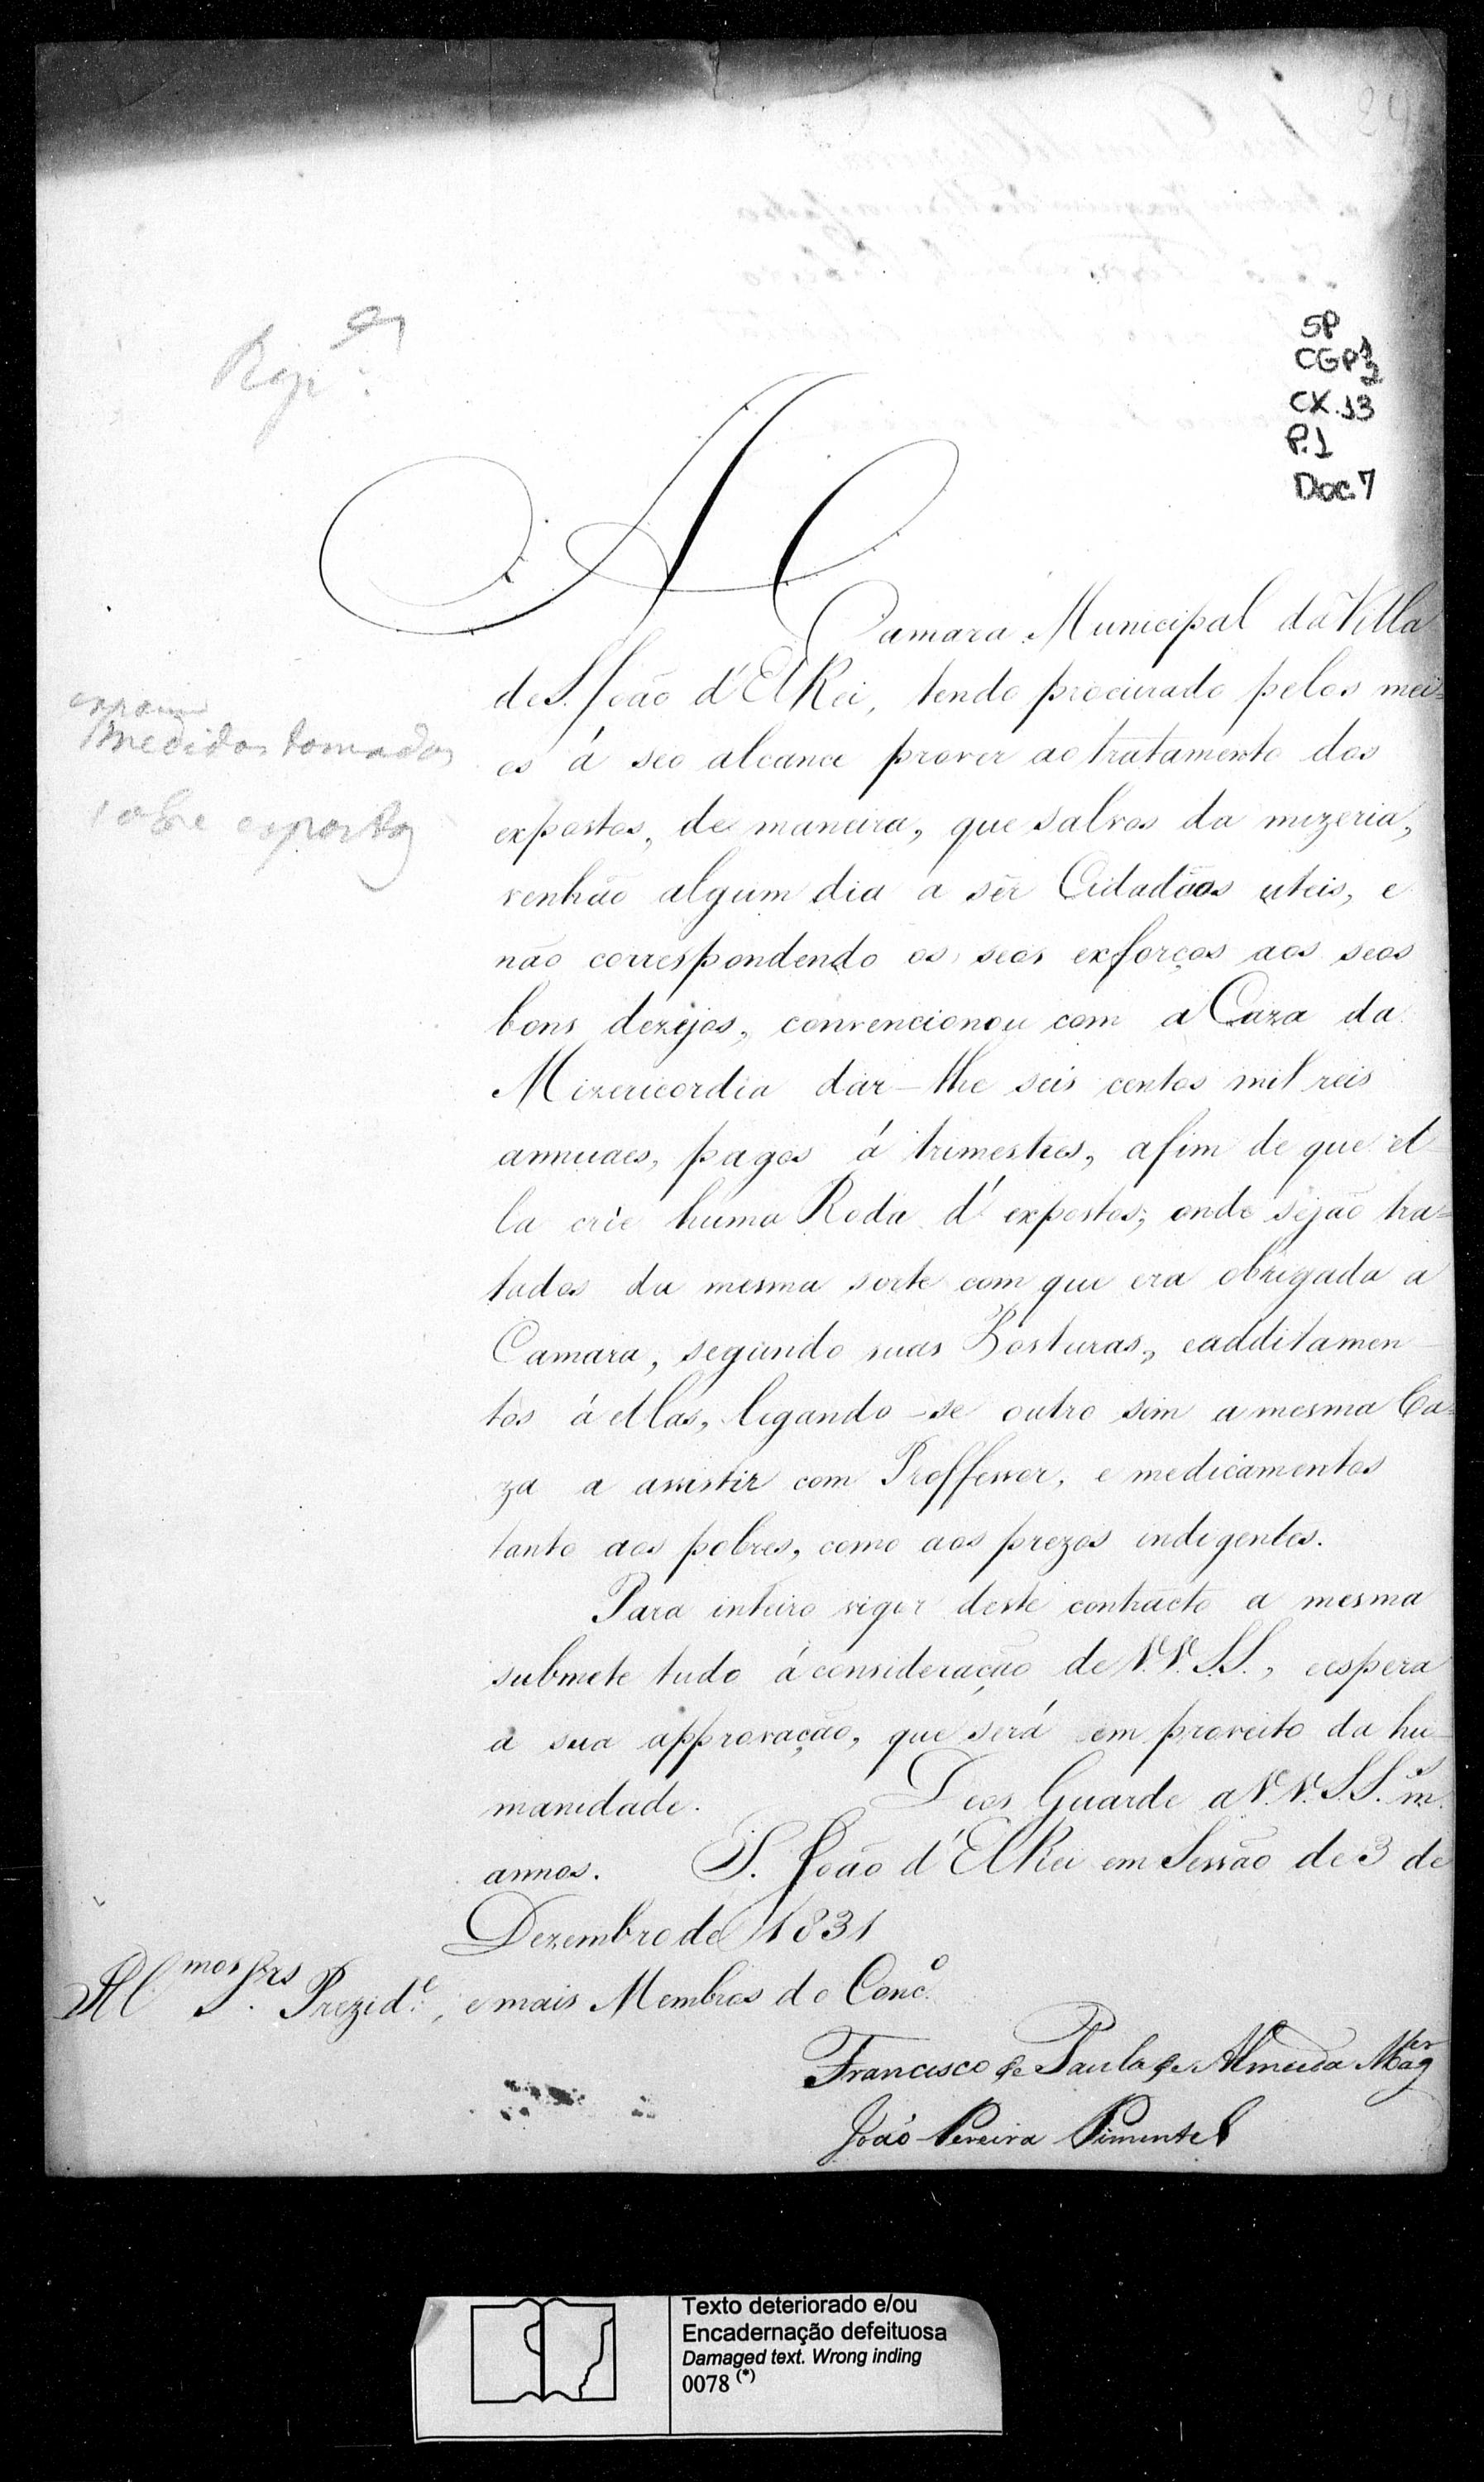 24
SP
CGP1
2
CX.13
P.1
Doc.7
A
Camara Municipal da Villa
de S. João d'ElRei, tendo procurado pelos mei=
os á seo alcance prover ao tratamento dos
expostos, de maneira, que salvos da mizeria,
venhão algum dia a sêr Cidadãos uteis, e
não correspondendo os seos exforços aos seos
bons dezejos, convencionou com a Caza da
Mizericordia dar-lhe seis centos mil reis
annuaes, pagos á trimestres, afim de que el-
la crie huma Roda d'expostos; onde sejão tra=
tados da mesma sorte com que era obrigada a
Camara, segundo suas Posturas, eadditamen-
tos á ellas, ligando-se outro sim a mesma Ca=
za a assistir com Proffessor, e medicamentos
tanto aos pobres, como aos prezos indigentes.
Para inteiro vigor deste contracto a mesma
submete tudo á consideração de V.V. S.S., eespera
a sua approvação, que será em proveito da hu-
manidade. Deos Guarde a V.V. S.S. m.s
annos. S. João d'ElRei em Sessão de 3 de
Dezembro de 1831
Ill.mos Srs. Prezid.e, e mais Membros do Conc.o
Francisco de Paula de Almeida Mag.er
João Pereira Pimentel
medidas tomadas
sobre expostos
Texto deteriorado e/ou
Encadernação defeituosa
Damaged text. Wrong inding
0078 (*)